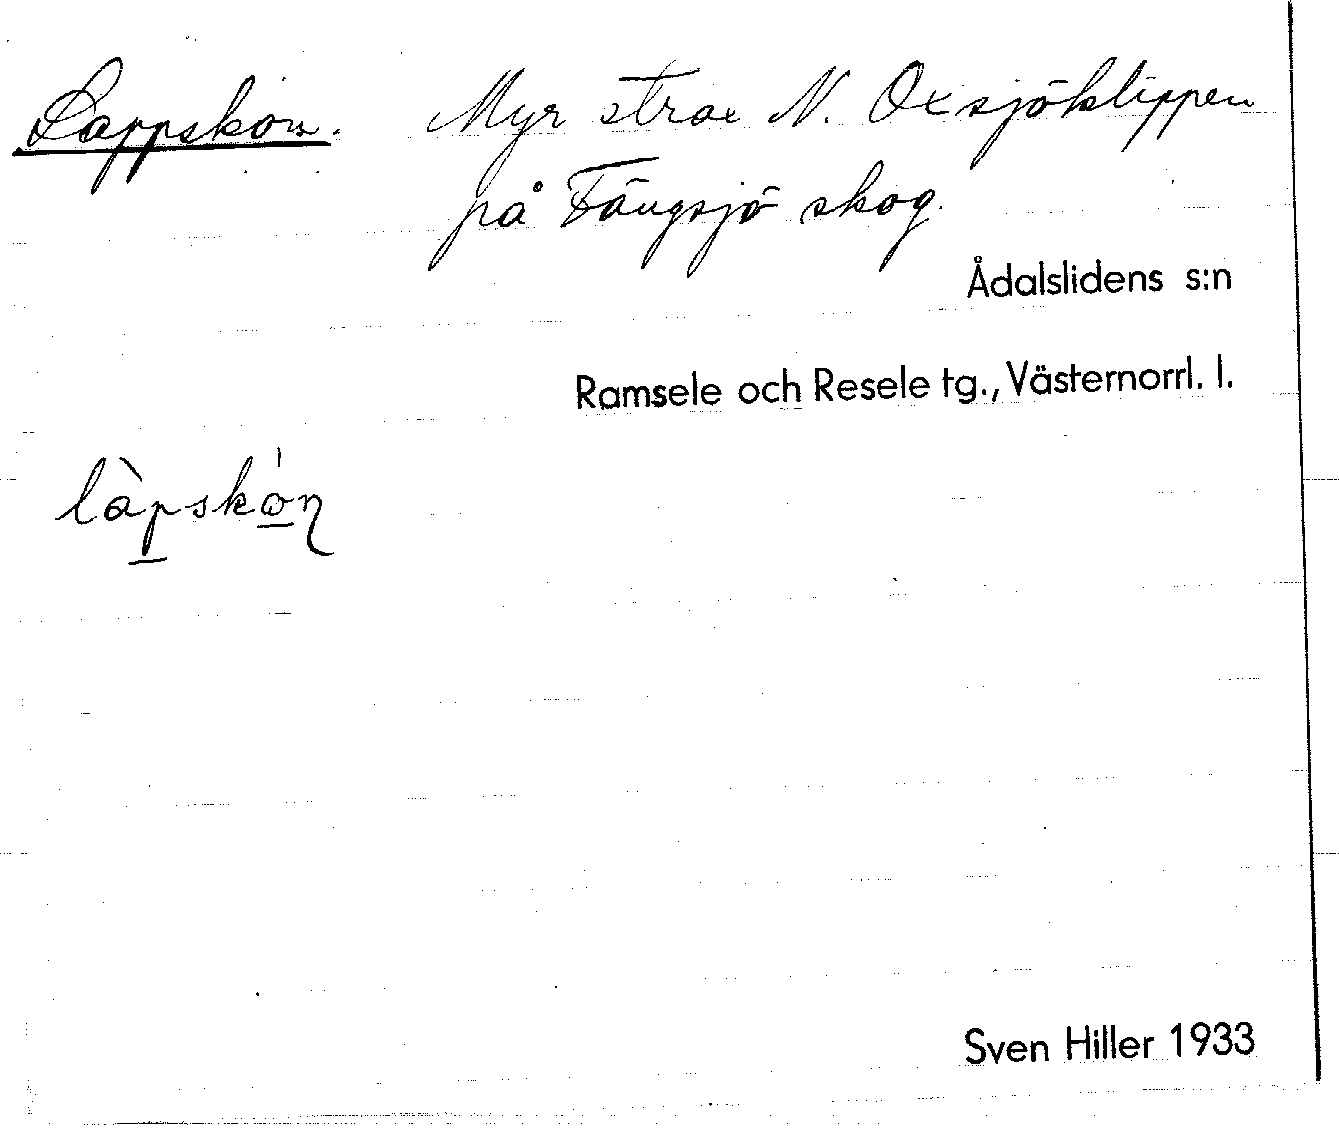 Lappskon. Myr strax N. Oxsjöklippen
på Tängsjö skog.
Ådalslidens s:n
Ramsele och Resele tg., Västernorrl. l.
làpskòn
Sven Hiller 1933